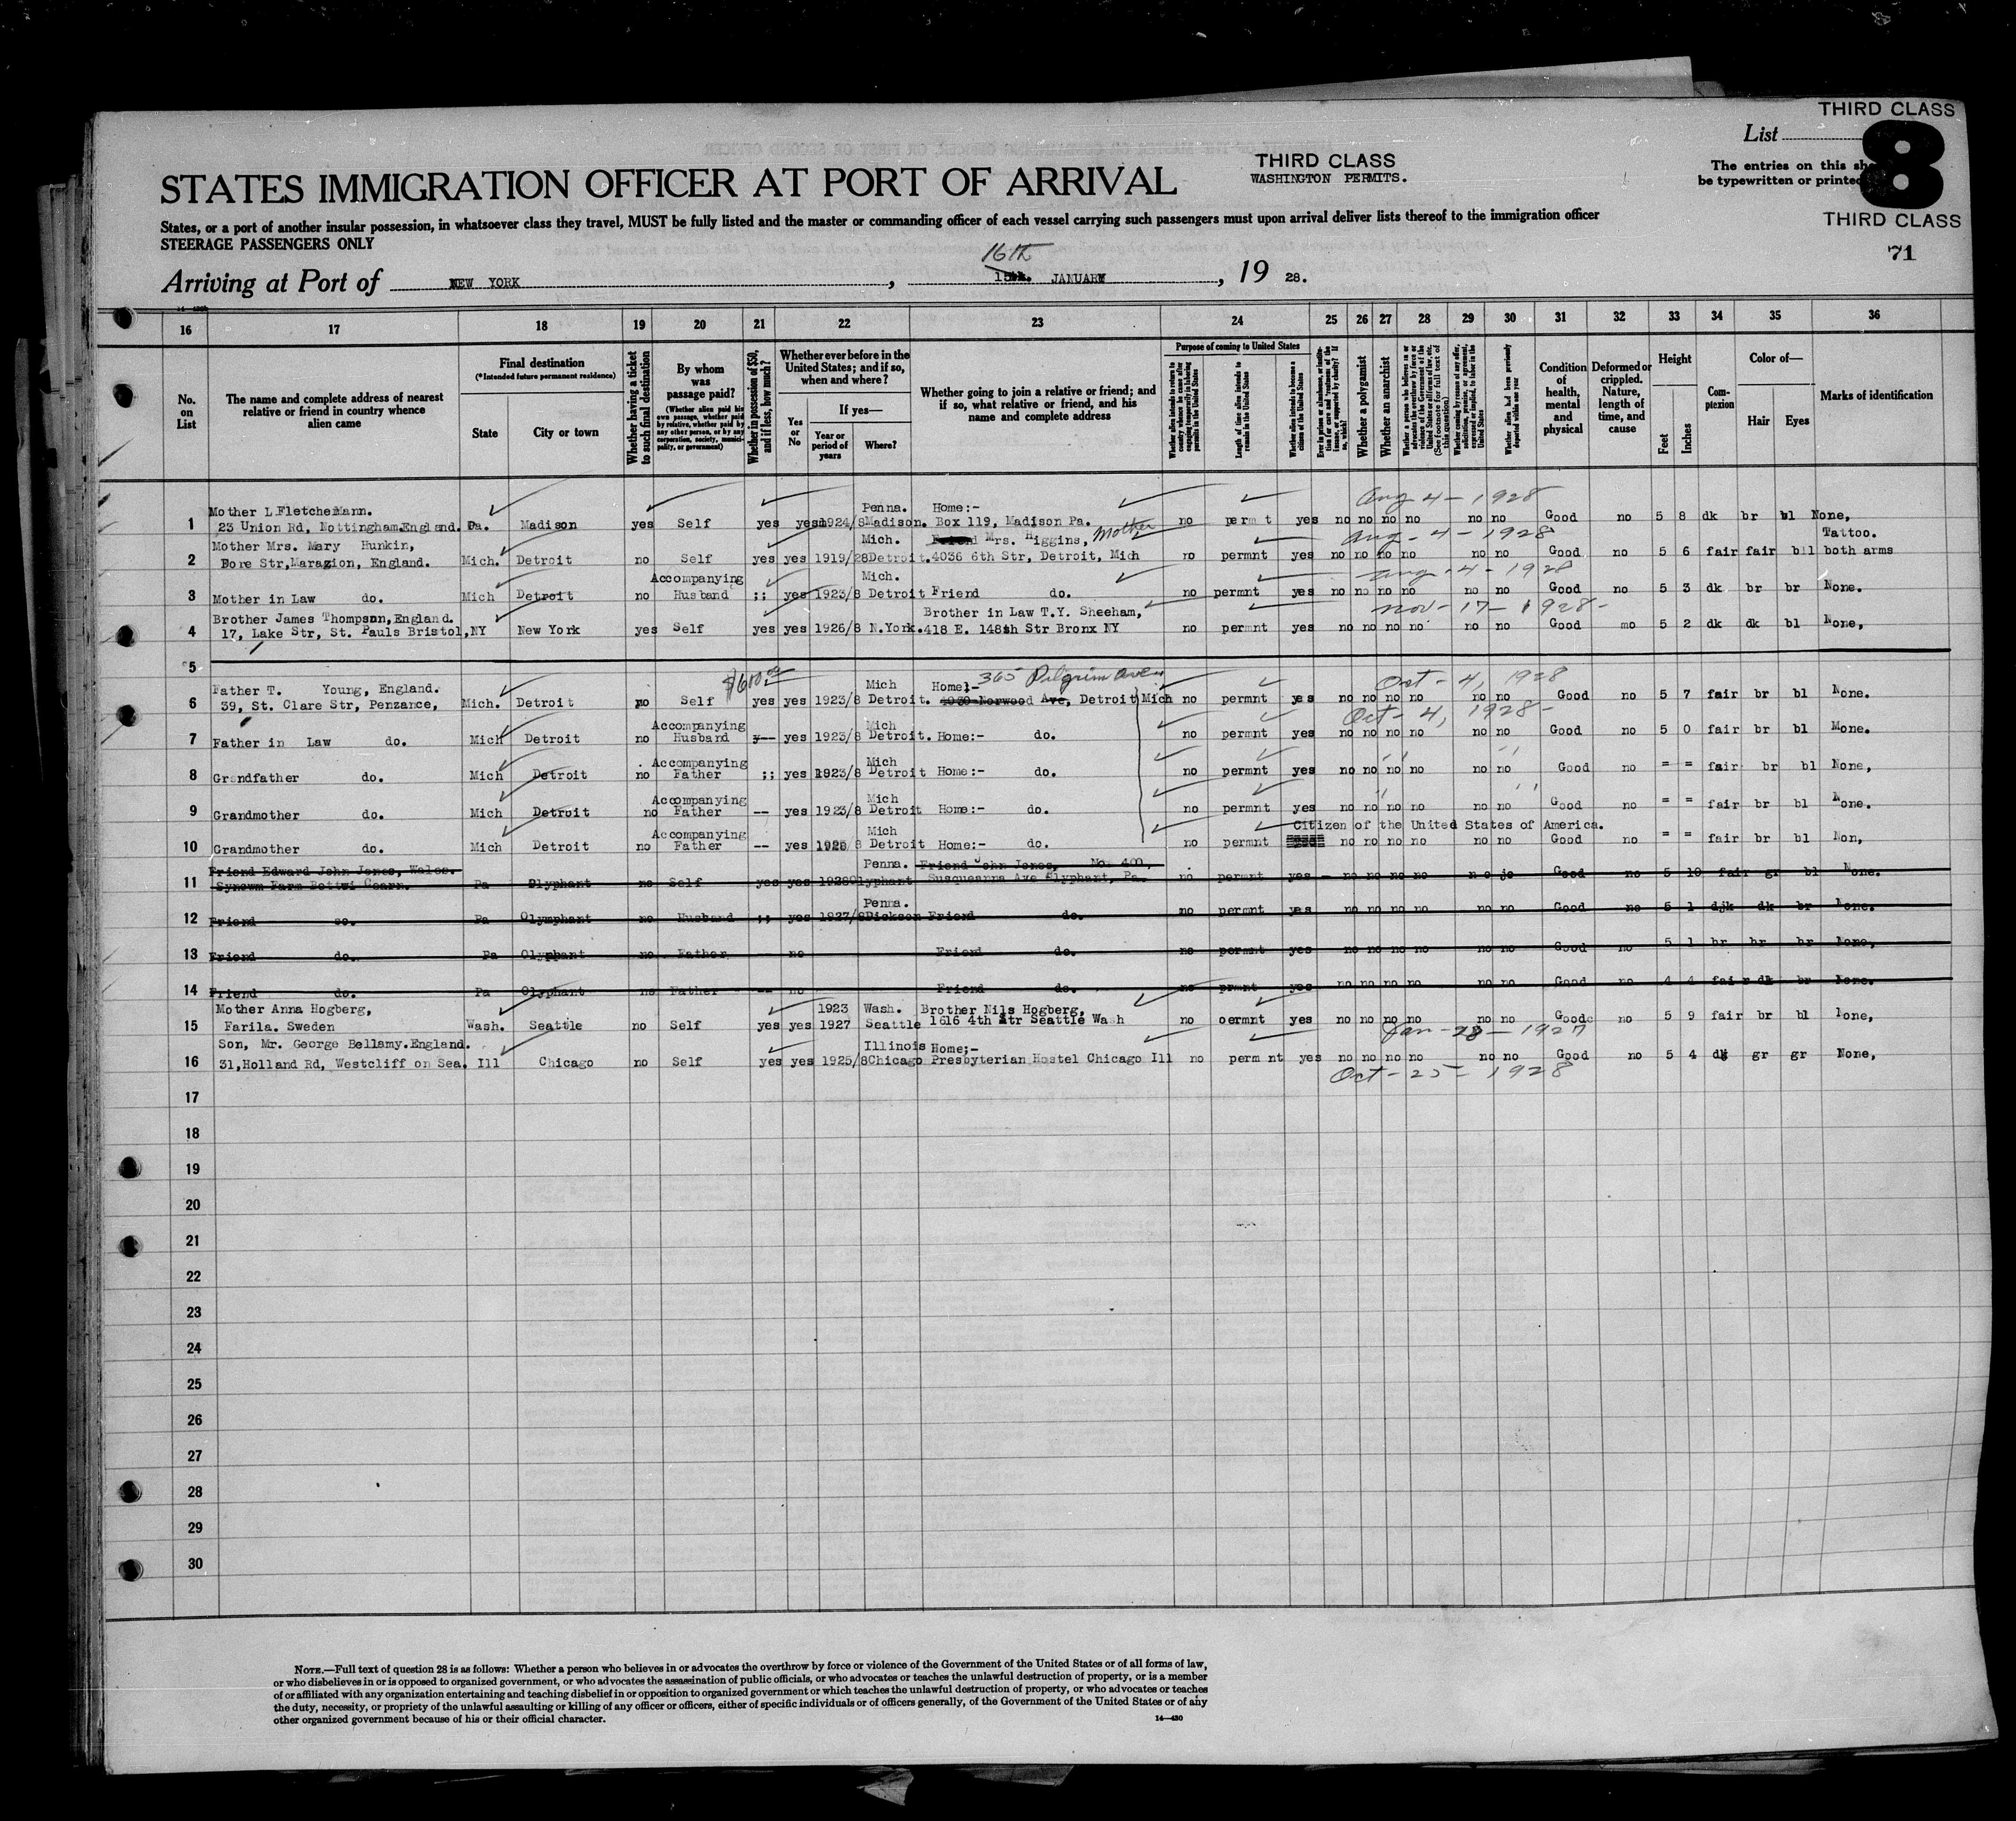 THIRD CLASS
List
8
The entries on this sh
be typewritten or printed
THIRD CLASS
71
THIRD CLASS
WASHINGTON PERMITS.
STATES IMMIGRATION OFFICER AT PORT OF ARRIVAL
States, or a port of another insular possession, in whatsoever class they travel, MUST be fully listed and the master or commanding officer of each vessel carrying such passengers must upon arrival deliver lists thereof to the immigration officer
STEERAGE PASSENGERS ONLY
16th
Arriving at Port of NEW YORK, 15th. JANUARY, 19 28.
16 17 18 19 20 21 22 23 24 25 26 27 28 29 30 31 32 33 34 35 36
No. on List
The name and complete address of nearest relative or friend in country whence alien came
Final destination
(*Intended future permanent residence)
State
City or town
Whether having a ticket to such final destination
By whom was passage paid?
(Whether alien paid his own passage, whether paid by relative, whether paid by any other person, or by any corporation, society, municipality, or government)
Whether in possession of $50, and if less, how much?
Whether ever before in the United States; and if so, when and where?
Yes or No
If yes—
Year or period of years
Where?
Whether going to join a relative or friend; and if so, what relative or friend, and his name and complete address
Purpose of coming to United States
Whether alien intends to return to country whence he came after engaging temporarily in laboring pursuits in the United States
Length of time alien intends to remain in the United States
Whether alien intends to become a citizen of the United States
Whether a polygamist
Whether an anarchist
Condition of health, mental and physical
Deformed or crippled. Nature, length of time, and cause
Height
Feet
Inches
Complexion
Color of—
Hair
Eyes
Marks of identification
Aug 4 - 1928
Mother L Fletcher Mann. Penna. Home:-
1 23 Union Rd, Nottingham.England. Pa. Madison yes Self yes yes 1924/8 Madison. Box 119, Madison Pa. no perm t yes no no no no no no Good no 5 8 dk br bl None,
Mother
Aug - 4 - 1928
Mother Mrs. Mary Hunkin, Mich. Friend Mrs. Higgins, Tattoo.
2 Fore Str,Marazion, England. Mich. Detroit no Self yes yes 1919/28 Detroit. 4036 6th Str, Detroit, Mich no permnt yes no no no no no no Good no 5 6 fair fair bl both arms
Aug - 4 - 1928
Accompanying Mich.
3 Mother in Law do. Mich Detroit no Husband ;; yes 1923/8 Detroit Friend do. no permnt yes no no no no no no Good no 5 3 dk br br None.
Nov - 17 - 1928 -
Brother James Thompson,England. Brother in Law T.Y. Sheeham,
4 17, Lake Str, St. Pauls Bristol, NY New York yes Self yes yes 1926/8 N.York. 418 E. 148th Str Bronx NY no permnt yes no no no no no no Good mo 5 2 dk dk bl None,
5
$600.00 365 Pilgrim Ave Oct - 4, 1928
Father T. Young, England. Mich Home:-
6 39, St. Clare Str, Penzance, Mich. Detroit no Self yes yes 1923/8 Detroit. 1030 Norwood Ave, Detroit Mich no permnt yes no no no no no no Good no 5 7 fair br bl None.
Oct - 4, 1928 -
Accompanying Mich
7 Father in Law do. Mich Detroit no Husband y-- yes 1923/8 Detroit. Home:- do. no permnt yes no no no no no no Good no 5 0 fair br bl None.
Accompanying Mich
8 Grandfather do. Mich Detroit no Father ;; yes 1923/8 Detroit Home:- do. no permnt yes no no no no no no Good no = = fair br bl None,
Accompanying Mich
9 Grandmother do. Mich Detroit no Father -- yes 1923/8 Detroit Home:- do. no permnt yes no no no no no no Good no = = fair br bl None.
Citizen of the United States of America.
Accompanying Mich
10 Grandmother do. Mich Detroit no Father -- yes 1925/8 Detroit Home:- do. no permnt no no no no no no Good no = = fair br bl Non,
Friend Edward John Jones, Wales. Penna. Friend John Jones, No. 400,
11 Farm Pa Olyphant no Self yes yes 1928 Olyphant Susqueanna Ave Olyphant, Pa. no permnt yes - no no no no Good no 5 10 fair gr bl None.
Penna.
12 Friend so. Pa Olymphant no Husband ;; yes 1927/8 Dickson Friend do. no permnt yes no no no no no no Good no 5 1 djk dk br None.
13 Friend do. Pa Olyphant no Father no Friend do. no permnt yes no no no no no no Good no 5 1 br br br None,
14 Friend do. Pa Olyphant no Father -- no Friend do. no prmnt yes no no no no no no Good no 4 4 fair dk br None.
Mother Anna Hogberg, 1923 Wash. Brother Nils Hogberg,
15 Farila. Sweden Wash. Seattle no Self yes yes 1927 Seattle 1616 4th Str Seattle Wash no oermnt yes no no no no no no Goodc no 5 9 fair br bl None,
Jan - 28 - 1927
Son, Mr. George Bellamy.England. Illinois Home;-
16 31,Holland Rd, Westcliff on Sea. Ill Chicago no Self yes yes 1925/8 Chicago Presbyterian Hostel Chicago Ill no perm nt yes no no no no no no Good no 5 4 dk gr gr None,
Oct - 25 - 1928
17
18
19
20
21
22
23
24
25
26
27
28
29
30
NOTE.—Full text of question 28 is as follows: Whether a person who believes in or advocates the overthrow by force or violence of the Government of the United States or of all forms of law,
or who disbelieves in or is opposed to organized government, or who advocates the assassination of public officials, or who advocates or teaches the unlawful destruction of property, or is a member
of or affiliated with any organization entertaining and teaching disbelief in or opposition to organized government or which teaches the unlawful destruction of property, or who advocates or teaches
the duty, necessity, or propriety of the unlawful assaulting or killing of any officer or officers, either of specific individuals or of officers generally, of the Government of the United States or of any
other organized government because of his or their official character.
14—430